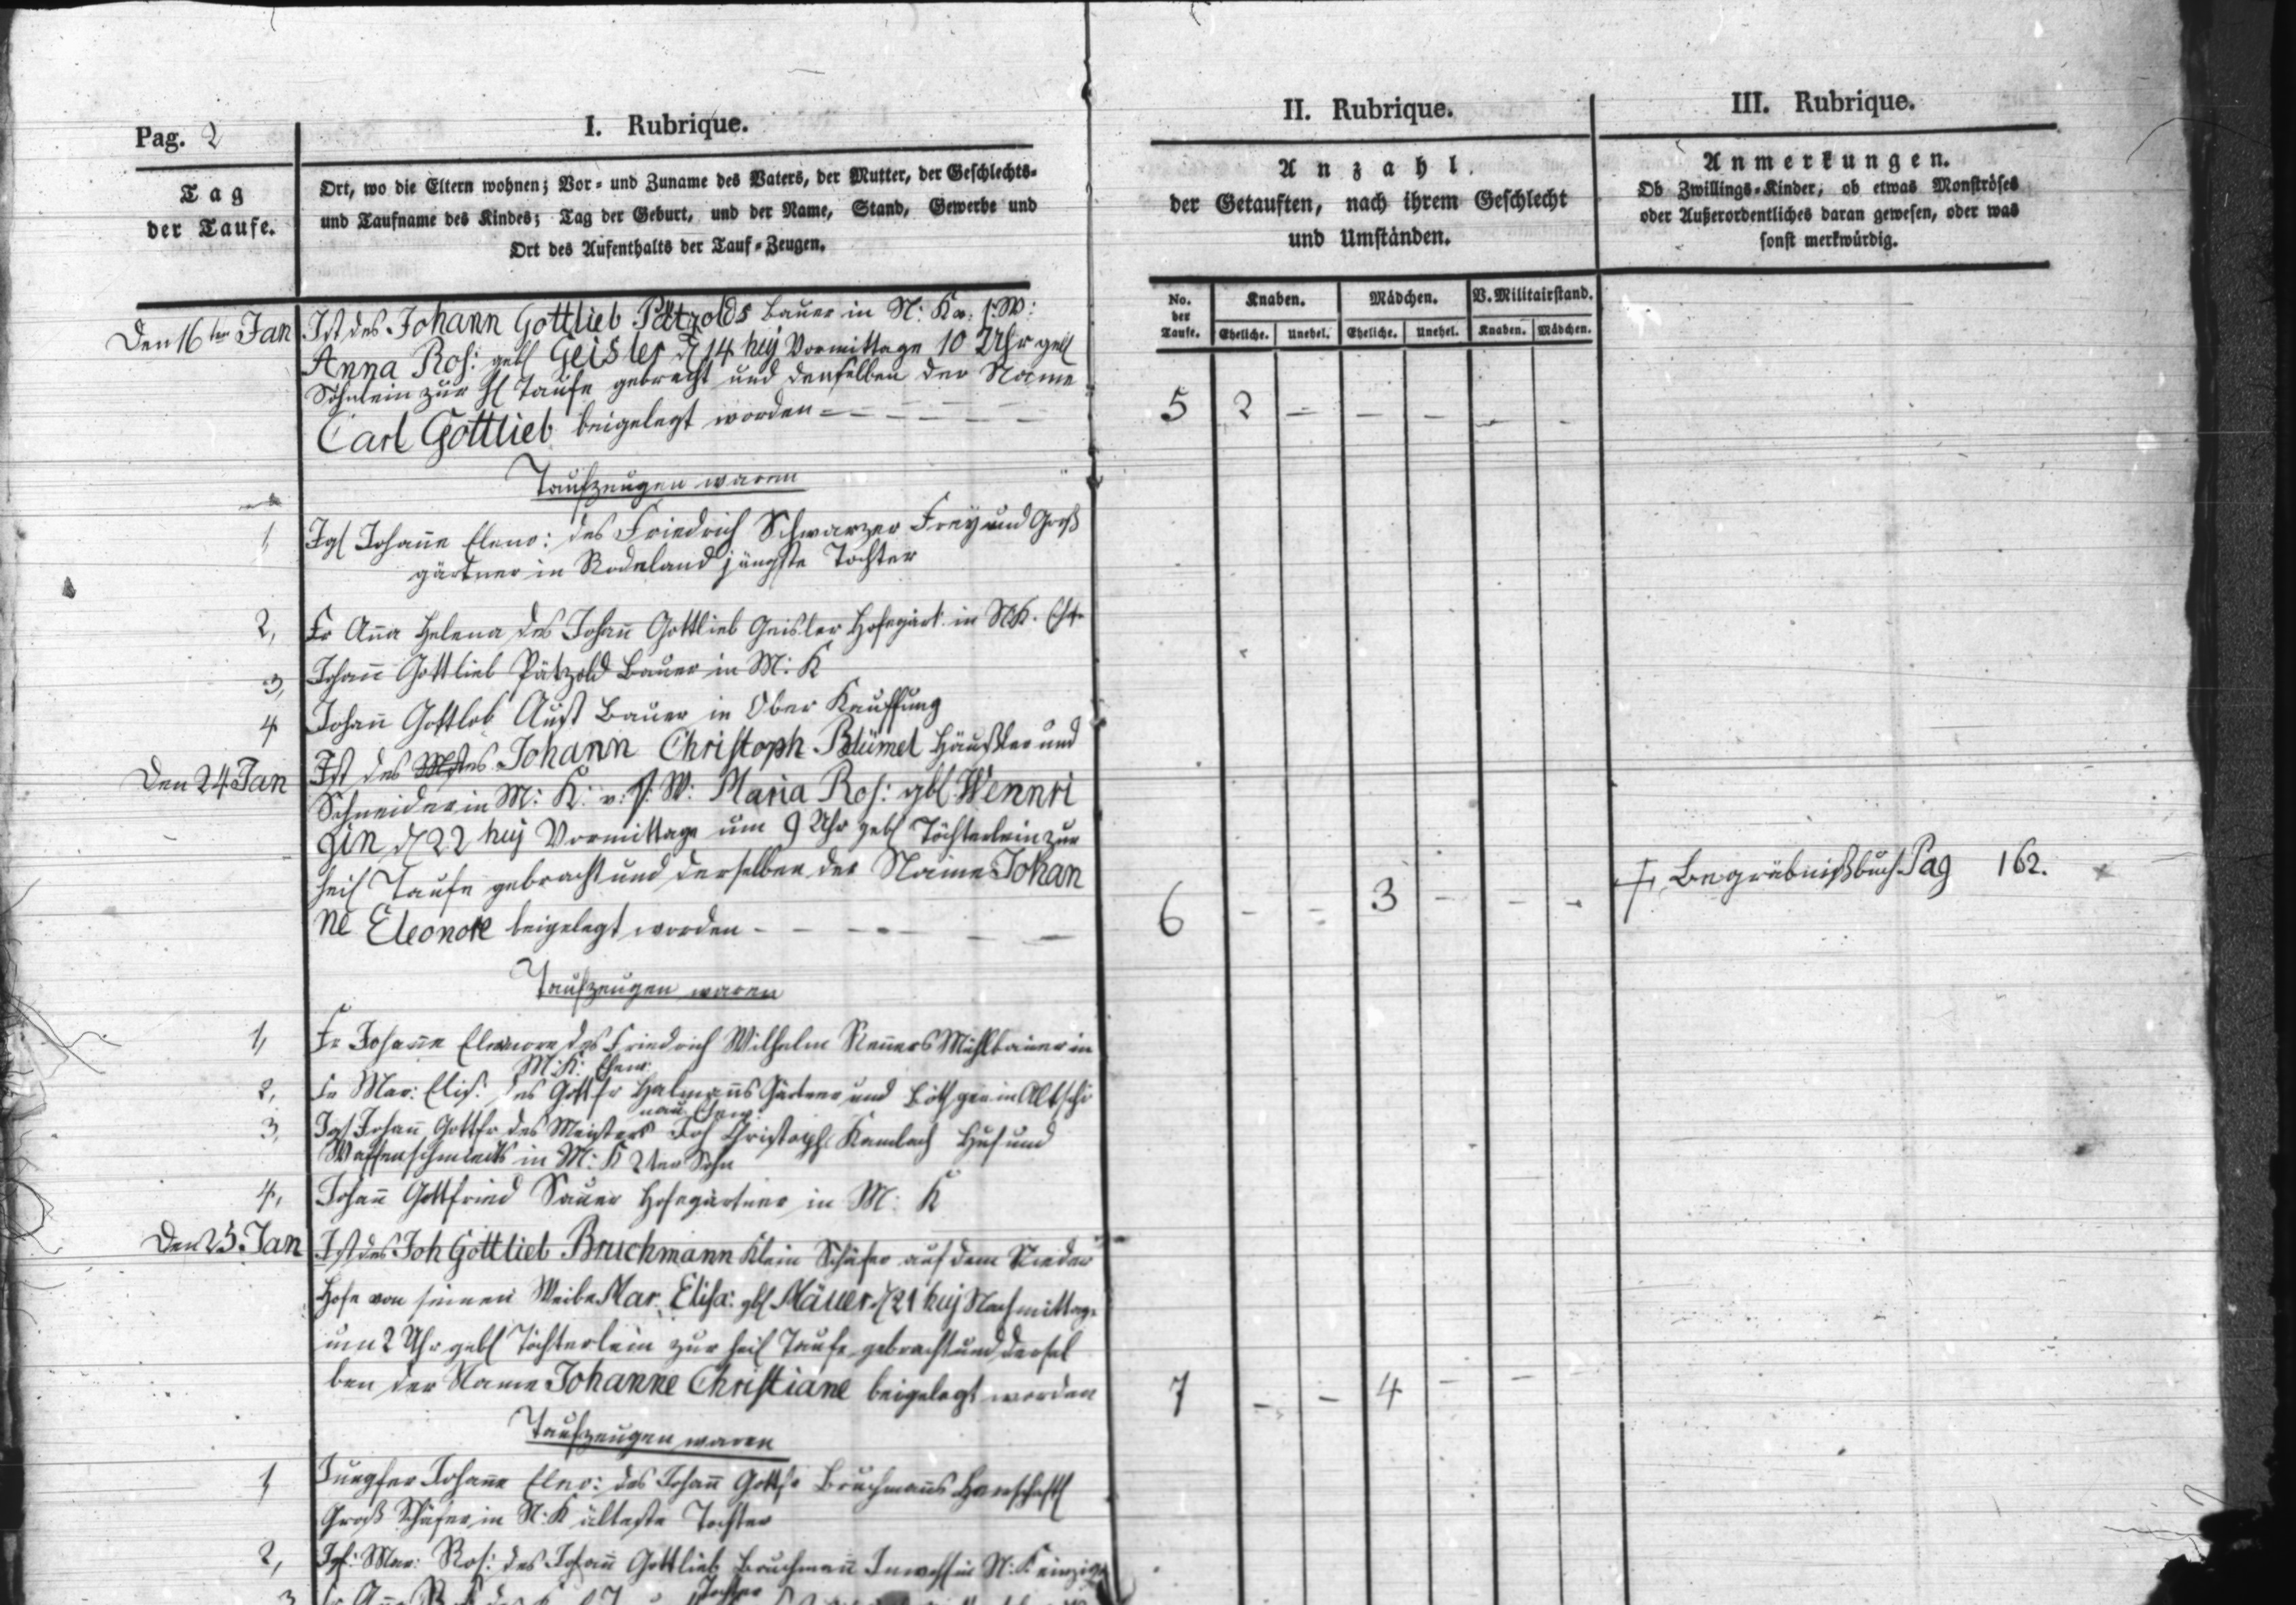 Pag. 2
I. Rubrique.
II. Rubrique.
III. Rubrique.
Tag
der Taufe.
Ort, wo die Eltern wohnen; Vor- und Zuname des Vaters, der Mutter, der Geschlechts-
und Taufname des Kindes; Tag der Geburt, und der Name, Stand, Gewerbe und
Ort des Aufenthalts der Tauf-Zeugen.
Anzahl
der Getauften, nach ihrem Geschlecht
und Umständen.
Anmerkungen.
Ob Zwillings-Kinder, ob etwas Monströses
oder Außerordentliches daran gewesen, oder was
sonst merkwürdig.
No. der Taufe.
Knaben.
Mädchen.
V. Militairstand.
Eheliche. Unehel. Eheliche. Unehel. Knaben. Mädchen.
Den 16ten Jan Ist des Johann Gottlieb Pätzolds Bauer in N: Ka: s: W:
Anna Ros: geb Geisler d 14 huj Vormittage 10 Uhr geb
Söhnlein zur Hl Taufe gebracht und denselben der Name
Carl Gottlieb beigelegt worden - - - - - -
5 2 - - - - -
Taufzeugen waren
1, Jgf Johanne Eleno: des Friedrich Schwarzer Frey und Groß
gärtner in Rodeland jüngste Tochter
2, Fr Anna Helena des Johann Gottlieb Geisler Hofegärt: in NK.
3, Johann Gottlieb Pätzold Bauer in M: K
4 Johann Gottlob Aust Bauer in Ober Kauffung
Den 24 Jan Ist des Johann Christoph Blümel Häusler und
Schneider in M: K: v: s: W: Maria Ros: gbl Wennri
gin d 22 huj Vormittage um 9 Uhr gebl Töchterlein zur
heil Taufe gebracht und derselben der Name Johan
ne Eleonore beigelegt worden - - - - - -
6 - - 3 - - -
Begräbnißbuch Pag 162.
Taufzeugen waren
1, Fr Johanne Elenore des Friedrich Wilhelm Renners Mühlbauer in
M: K: Ehew:
2, Fr Mar: Elis: des Gottfr Halmanns Gärtner und in Altschö
nau Ehew:
3, Jgs Johann Gottfr des Meisters Joh Christoph Kambach Huf und
Waffenschmieds in M: K 2ter Sohn
4, Johann Gottfried Sauer Hofegärtner in M: K
Den 25 Jan Ist des Joh Gottlieb Bruchmann Klein Schäfer auf dem Nieder
Hofe von seinen Weibe Mar: Elisa: gbl Mäuer d 21 huj Nachmittag
um 2 Uhr gebl Töchterlein zur heil Taufe gebracht und dersel
ben der Name Johanne Christiane beigelegt worden
7 - - 4 - - -
Taufzeugen waren
1 Jungfer Johanne Eleo: des Johann Gottfr Bruchmanns Herrschaftl
Groß Schäfer in N: K älteste Tochter
2, Jgf: Mar: Ros: des Johann Gottlieb Bruchmann Inwohl in N: K einzige
Tochter
3